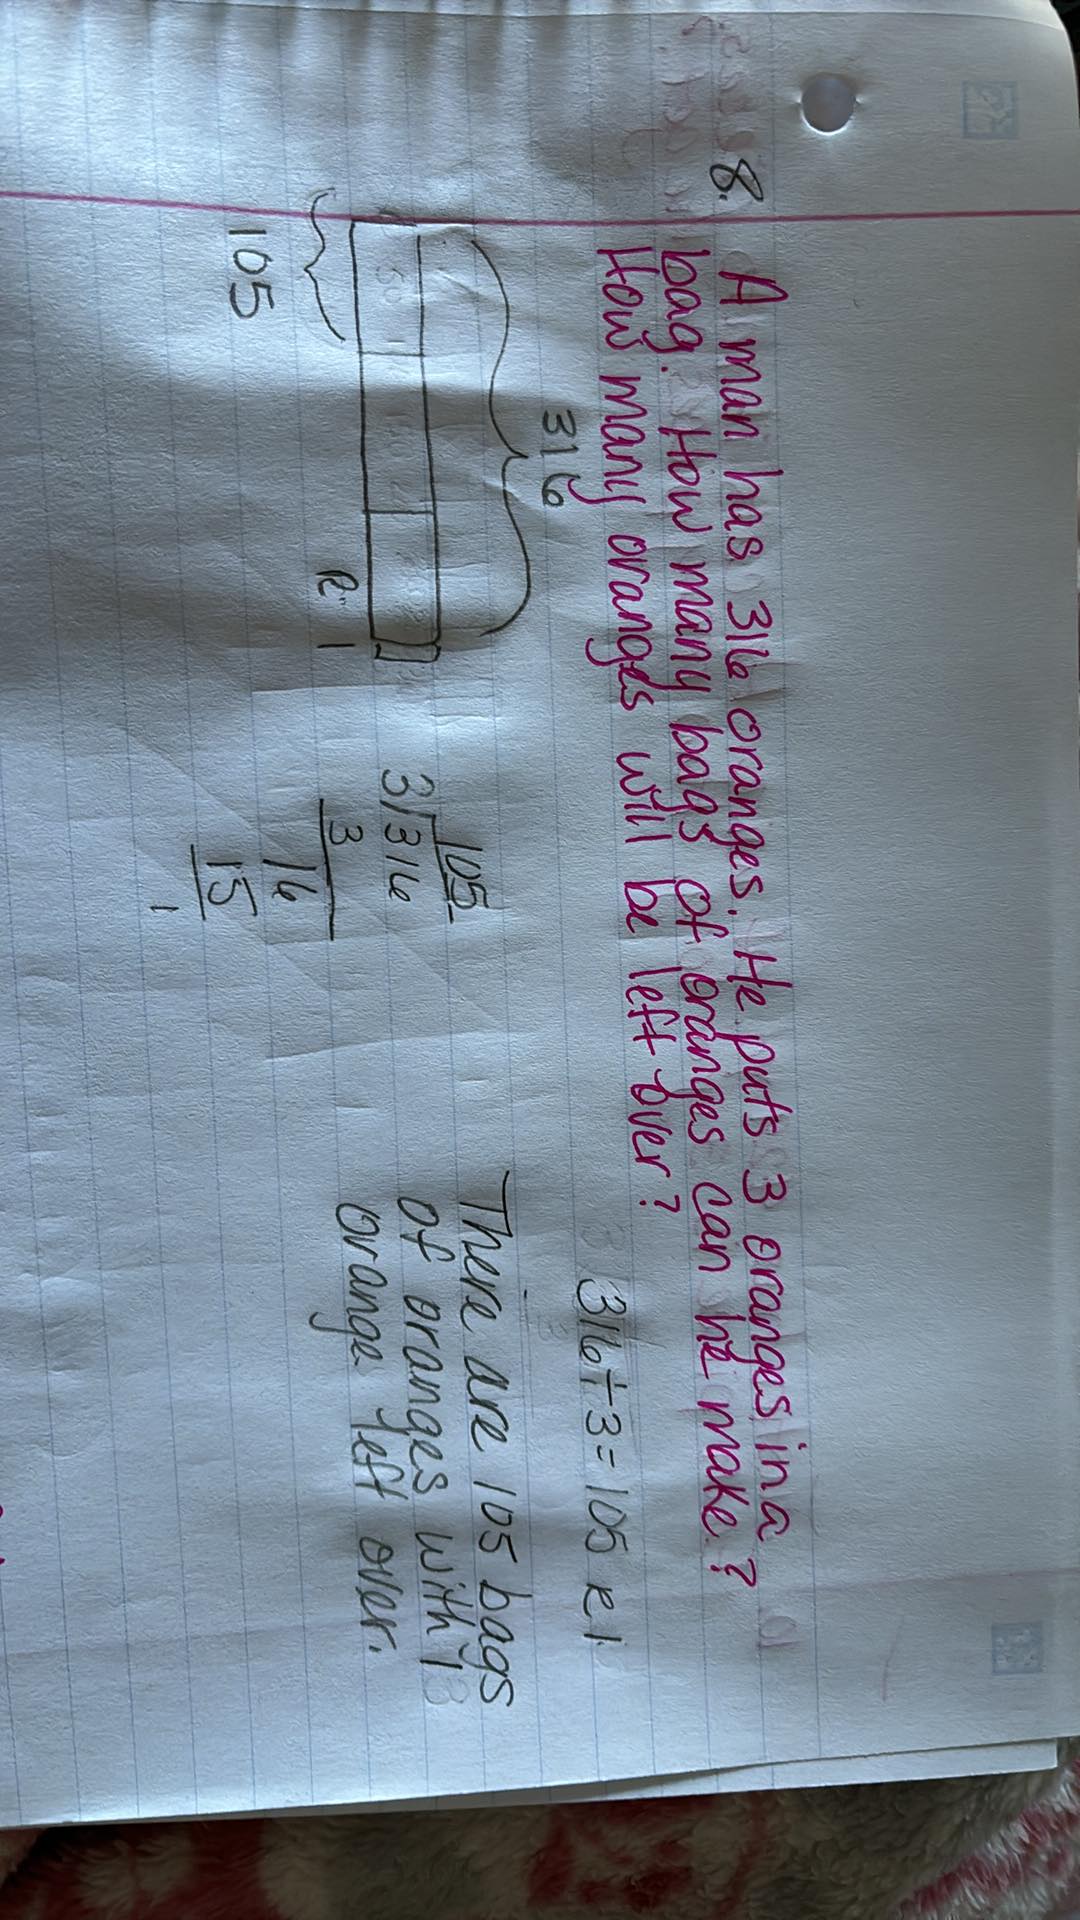 8. A man has 316 oranges. He puts 3 oranges in a
bag. How many bags of oranges can he make?
How many oranges will be left over?
316
105
R 1
105
3 316
3
16
15
1
316÷3=105 R1
There are 105 bags
of oranges with 1
orange left over.